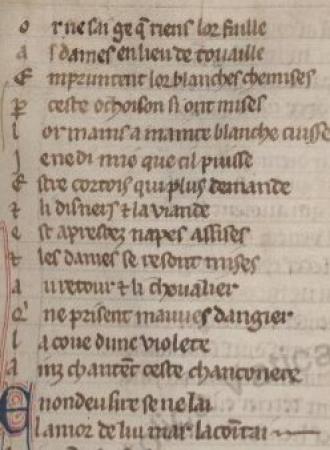 o r ne sai ge q̃ tiens lor fuille
a s dames en lieu de touaille
E mpruntent lor blanches chemises
p̲ ceste ochoison si ont mises
l or mains a mainte blanche cuisse
J e ne di mie que cil puisse
E stre cortois qui plus demande
⁊ li disners ⁊ la viande
e st aprestez napes assises
⁊ les dames se resont mises
a u retour ⁊ li chevalier
Q' ne prisent mauves dangier
l a coue dune violete
A inz chantẽt ceste chançonete
E nondeu sire se ne lai
l amor de lui mar lacõtai